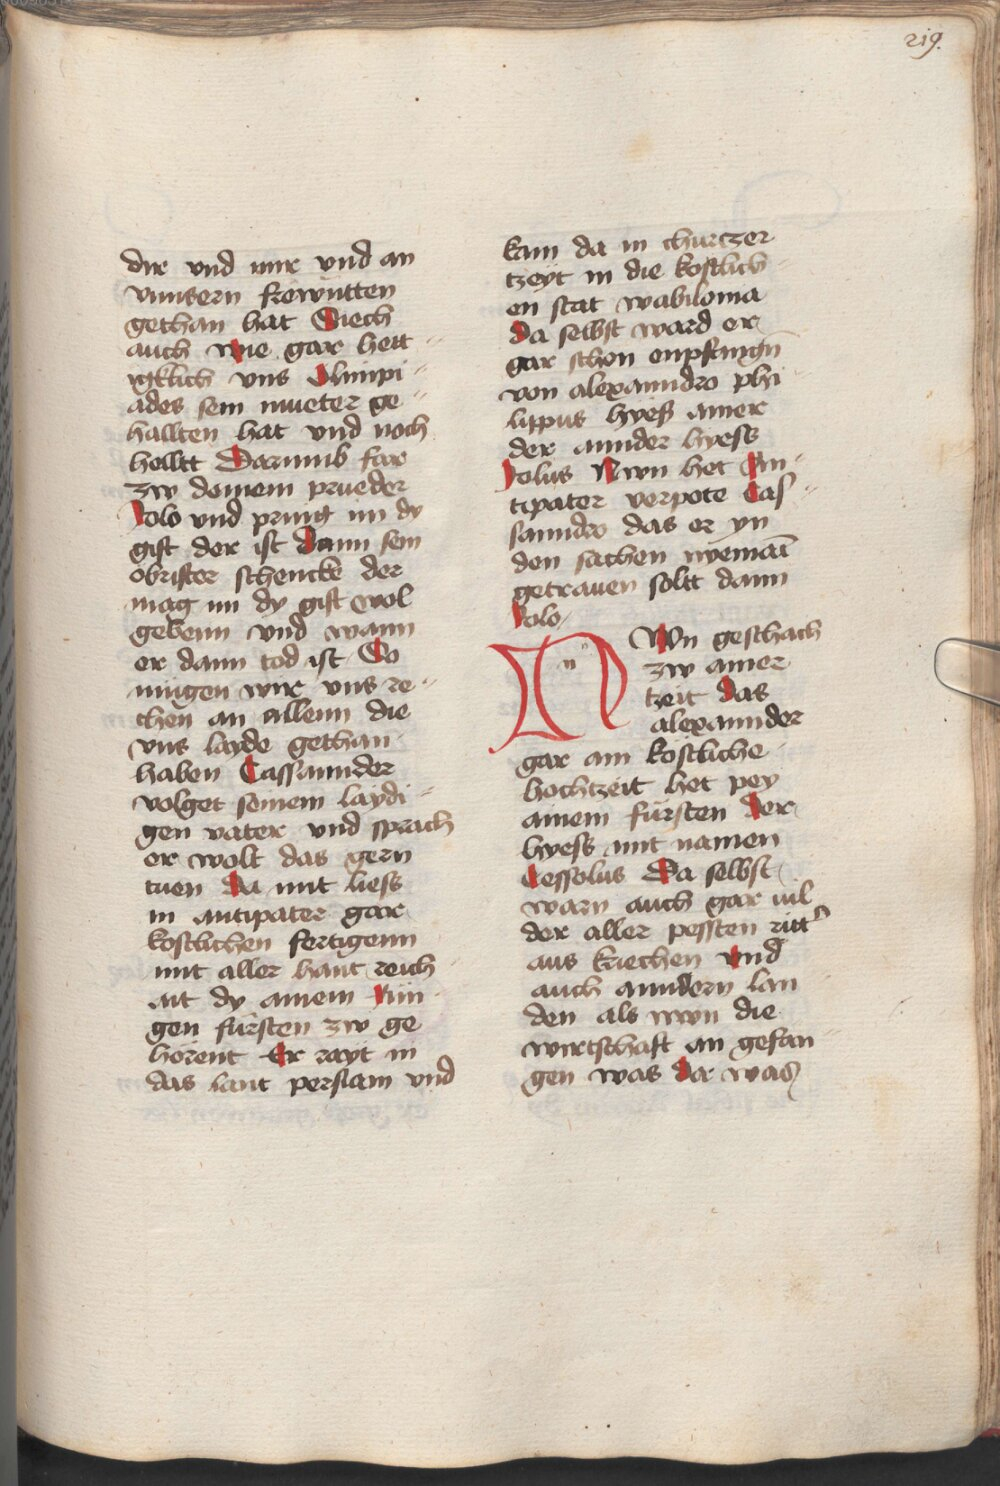 219.
dir vnd mir vnd an
vnnsern frewntten
gethan hat Siech
auch wie gar hertt
igklich vns Olimpi
ades sein mueter ge
hallten hat vnd noch
helltt Darumb far
zw deinem prueder
Jolo vnd pring im dy
gift der ist dann sein
obrister schencke der
mag im dy gift wol
gebenn vnd wann
er dann tod ist So
mügen wir vns re
chen an allenn die
vns layde gethan
haben Cassannder
volget seinem laydi
gen vater vnd sprach
er wolt das gern
tuen da mit liess
in antipater gar
kostlichen fertigenn
mit aller hant reich
ait dy ainem Jün
gen fürsten zw ge
hörent Er rayt in
das lant persiam vnd
kam da in churtzer
tzeyt in die kostlich
en stat wabilonia
da selbst ward er
gar schon enpfangn
von alexanndro phi
lippus hyeß ainer
der annder hyess
Jolus Nwn het An
tipater verpote Cas
sanndro das er yn
den sachen nyemāt
getrauen soltt dann
Jolo
n
NWn geschach
zw ainer
tzeit das
alexannder
gar ain kostliche
hochtzeit het pey
ainem fürsten der
hyess mit namen
Cessolus Da selbst
warn auch gar uil
der aller pessten ritt
aus kriechen vnd
auch anndern lan
den als nwn die
wirtschaft an gefan
gen was da was